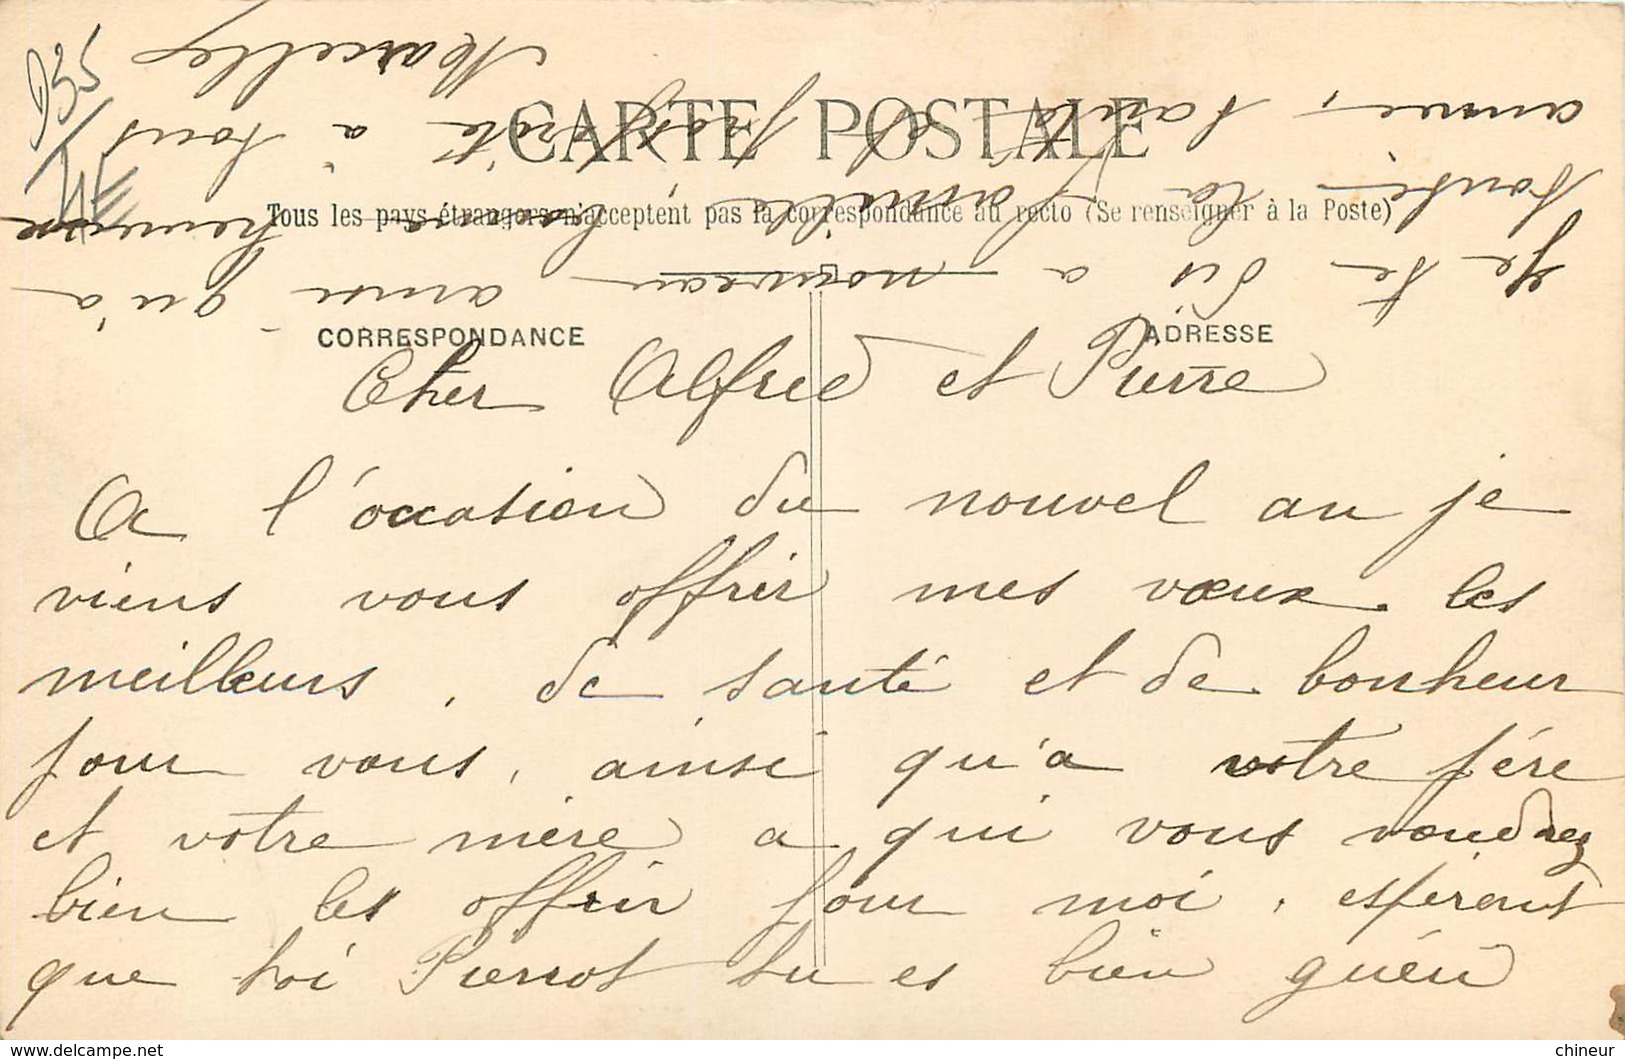 D35
CARTE POSTALE
Tous les pays étrangers n'acceptent pas la correspondance au recto (Se renseigner à la Poste)
CORRESPONDANCE
ADRESSE
Cher Alfred et Pierre
A l'occasion du nouvel an je
viens vous offrir mes vœux les
meilleurs, de santé et de bonheur
pour vous, ainsi qu'a votre père
et votre mère a qui vous voudrez
bien les offrir pour moi, espérant
que toi Pierrot tu es bien guéri
Je te dis a nouveau ainsi qu'à
toute la famille bonne heureuse
année, santé prospérité à tous
Marcelle
chineur